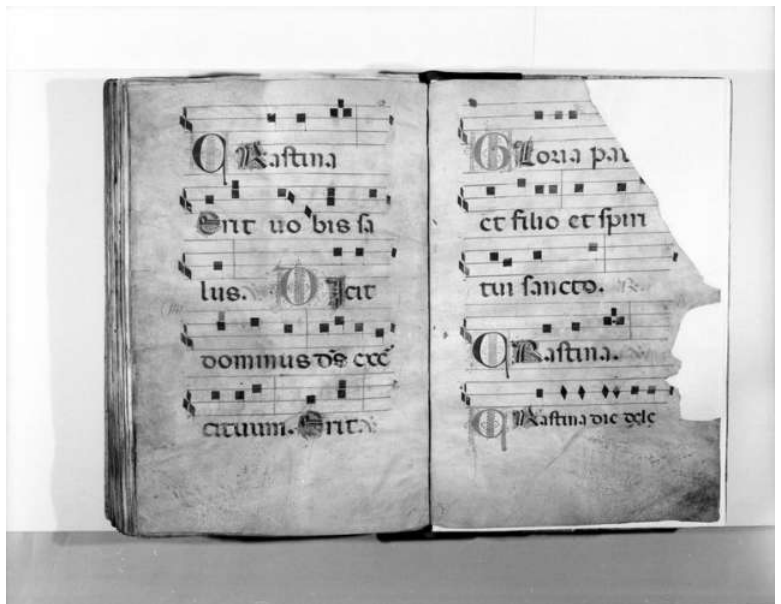 CRastina
Erit uobis sa
lus. DIcit
dominus ds exer
cituum. Erit
GLoria pat
et filio et spiri
tui sancto.
CRastina.
CRastina die dele